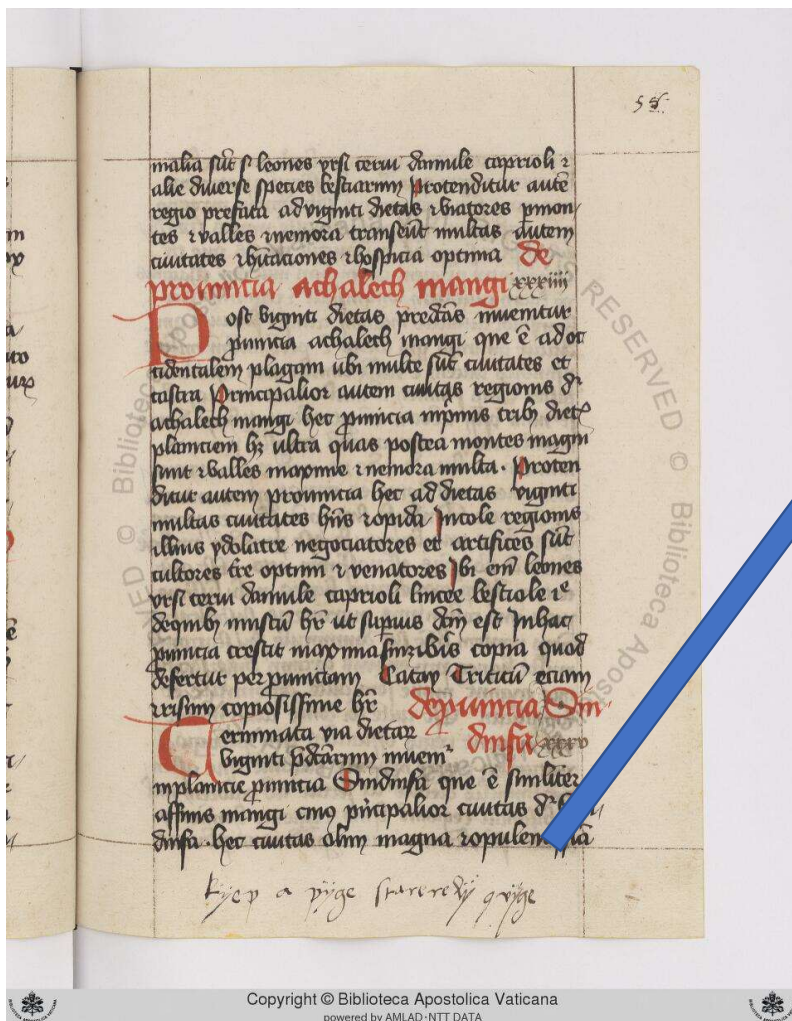 58.
malia sūt s· leones vrsi cerui damule caprioli ⁊
alie diuerse species bestiarum Protenditur autē
regio prefata ad viginti dietas ⁊ viatores p mon
tes ⁊ valles ⁊ nemora transeūt multas autem
ciuitates ⁊ hītaciones ⁊ hospicia optima de
prouincia achalech mangi xxxiiii
Post viginti dietas predc̄as inuenitur
puincia achalech mangi que ē ad oc
cidentalem plagam vbi multe sūt ciuitates et
castra Principalior autem ciuitas regionis dr̄
achalech mangi hec puincia in pmis trib; diet
planiciem hꝫ vltra quas postea montes magni
sunt ⁊ valles maxime ⁊ nemora multa. Proten
ditur autem prouincia hec ad dietas viginti
multas ciuitates hn̄s ⁊ opida Incole regionis
illius ydolatre negociatores et artifices sūt
cultores tre optimi ⁊ venatores Ibi em̄ leones
vrsi cerui damule caprioli lincee bestiole
de quib; muscū hr̄ vt superius dcm̄ est In hac
puincia crescit copia quod
defertur per puinciam Catay Triticū eciam
⁊ risum copiosissime hr̄ de puincia Sin
dinfa xxxv
Terminata via dietar
viginti pdc̄arum inuenit
in planicie puincia Sindinfa que ē similiter
affinis mangi cuius pn̄cipalior ciuitas dr̄
dinfa. hec ciuitas olim magna
Copyright © Biblioteca Apostolica Vaticana
powered by AMLAD·NTT DATA